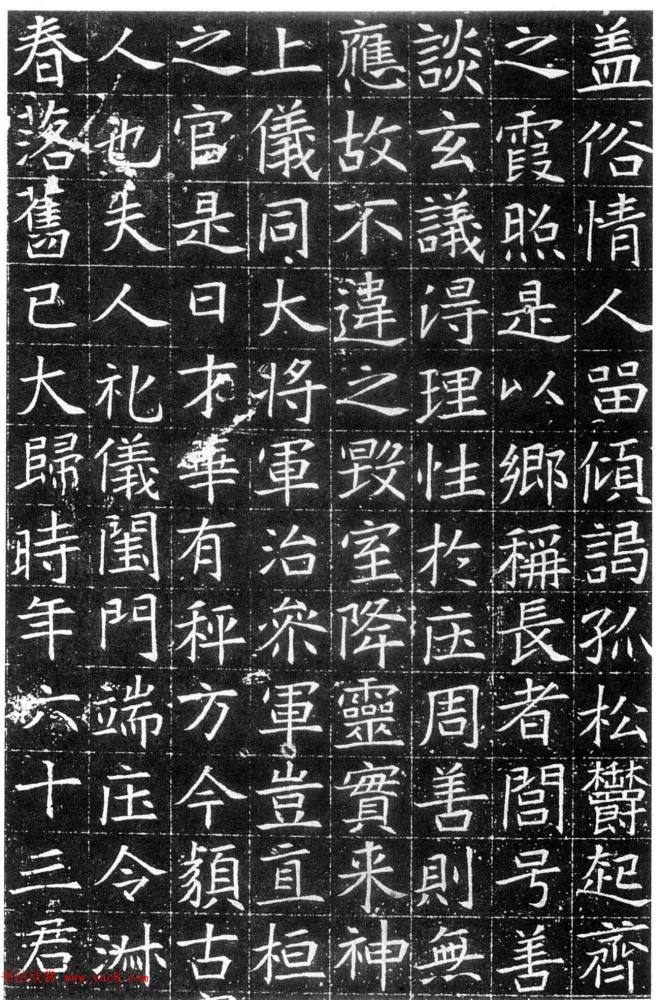 盖俗情人畱傾謁孤松欝起齊
之霞照是以鄉稱長者閭号善
談玄議淂理性於庄周善則無
應故不違之毀室降靈實来神
上儀同大將軍治叅軍豈直
之官是日才華有秤方今頪古
人也夫人礼儀閨門端庄令淋
春落舊已大歸時年六十三君
书法欣赏 www.yac8.com